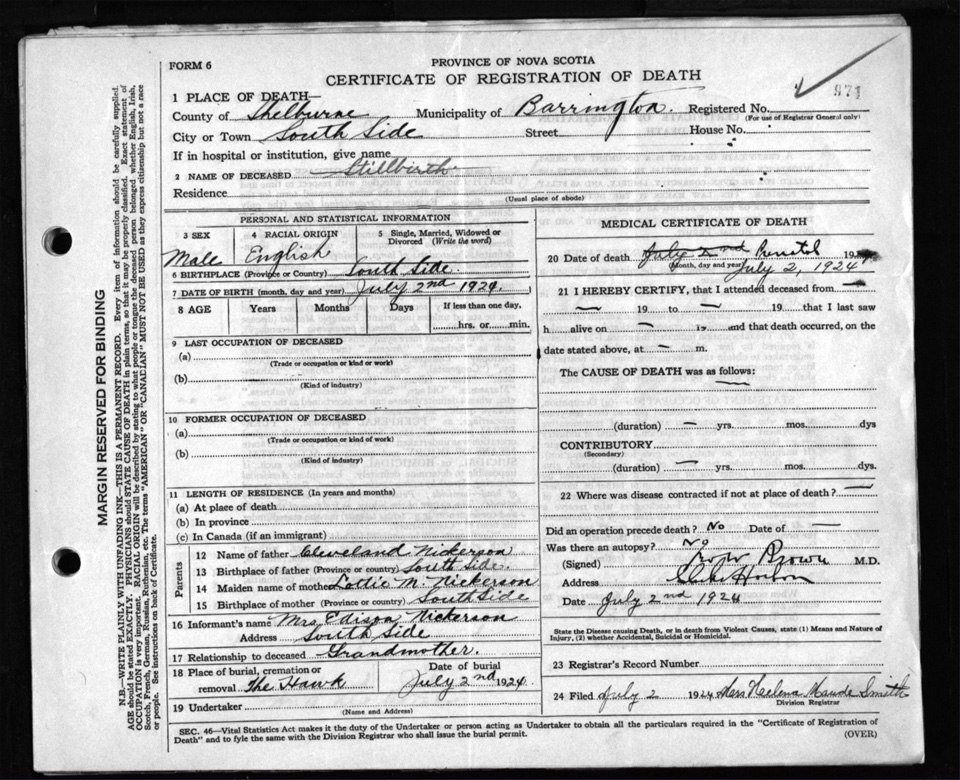 FORM 6
PROVINCE OF NOVA SCOTIA
CERTIFICATE OF REGISTRATION OF DEATH
971
1 PLACE OF DEATH—
County of Shelburne Municipality of Barrington. Registered No.
(For use of Registrar General only)
City or Town South Side Street House No.
If in hospital or institution, give name
2 NAME OF DECEASED Stillbirth
Residence
(Usual place of abode)
PERSONAL AND STATISTICAL INFORMATION
3 SEX
Male
4 RACIAL ORIGIN
English
5 Single, Married, Widowed or
Divorced (Write the word)
6 BIRTHPLACE (Province or Country) South Side.
7 DATE OF BIRTH (month, day and year) July 2nd 1924.
8 AGE Years Months Days If less than one day,
hrs. or min.
9 LAST OCCUPATION OF DECEASED
(a)
(Trade or occupation or kind or work)
(b)
(Kind of industry)
10 FORMER OCCUPATION OF DECEASED
(a)
(Trade or occupation or kind of work)
(b)
(Kind of industry)
11 LENGTH OF RESIDENCE (In years and months)
(a) At place of death
(b) In province
(c) In Canada (if an immigrant)
Parents
12 Name of father Cleveland Nickerson
13 Birthplace of father (Province or country) South Side.
14 Maiden name of mother Lottie M. Nickerson
15 Birthplace of mother (Province or country) South Side
16 Informant's name Mrs. Edison Nickerson
Address South Side
17 Relationship to deceased Grandmother.
18 Place of burial, cremation or
removal The Hawk
Date of burial
July 2nd 1924
19 Undertaker
(Name and Address)
MEDICAL CERTIFICATE OF DEATH
20 Date of death July 2nd 19
(Month, day and year) July 2, 1924
21 I HEREBY CERTIFY, that I attended deceased from —
— 19 to — 19 that I last saw
h alive on — 19 and that death occurred, on the
date stated above, at — m.
The CAUSE OF DEATH was as follows:
—
(duration) — yrs. mos. dys
CONTRIBUTORY
(Secondary)
(duration) — yrs. mos. dys.
22 Where was disease contracted if not at place of death? —
Did an operation precede death? No Date of —
Was there an autopsy? No
(Signed) Brown M.D.
Address
Date July 2nd 1924
State the Disease causing Death, or in death from Violent Causes, state (1) Means and Nature of
Injury, (2) whether Accidental, Suicidal or Homicidal.
23 Registrar's Record Number
24 Filed July 2 1924 Maude Smith
Division Registrar
SEC. 46—Vital Statistics Act makes it the duty of the Undertaker or person acting as Undertaker to obtain all the particulars required in the "Certificate of Registration of
Death" and to fyle the same with the Division Registrar who shall issue the burial permit.
(OVER)
MARGIN RESERVED FOR BINDING
N.B.—WRITE PLAINLY WITH UNFADING INK—THIS IS A PERMANENT RECORD. Every item of information should be carefully supplied.
AGE should be stated EXACTLY. PHYSICIANS should STATE CAUSE OF DEATH in plain terms, so that it may be properly classified. Exact statement of
OCCUPATION is very important. RACIAL ORIGIN will be described by stating to what people or tongue the deceased person belonged whether English, Irish,
Scotch, French, German, Russian, Ruthenian, etc. The terms "AMERICAN" OR "CANADIAN" MUST NOT BE USED as they express citizenship but not a race
or people. See instructions on back of Certificate.